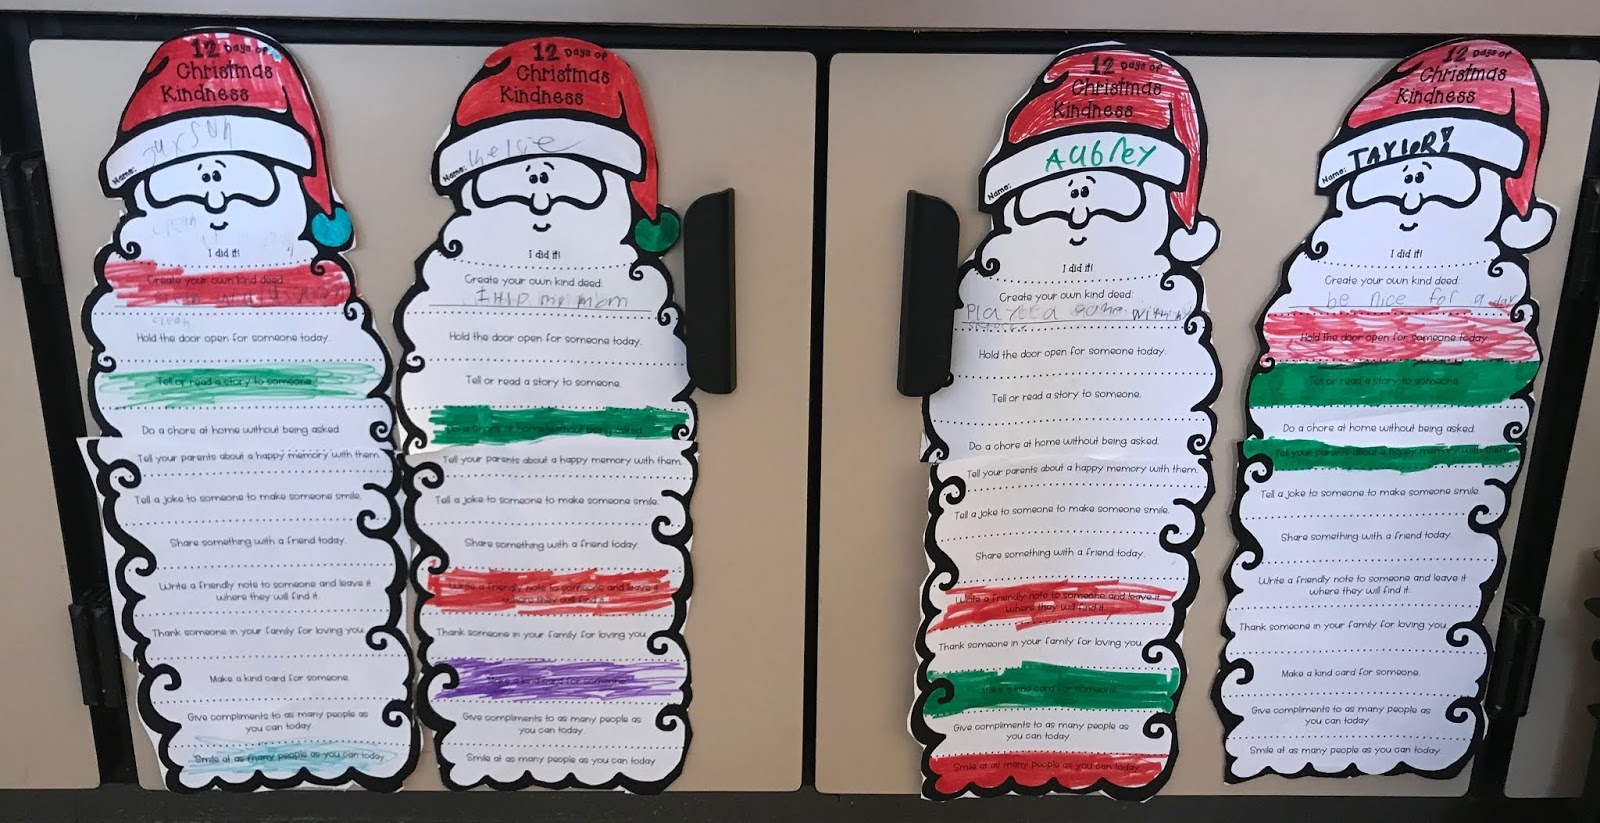 12 Days of
Christmas
Kindness
Name: Jaxson
I did it!
Create your own kind deed:
clean
Hold the door open for someone today.
Tell or read a story to someone.
Do a chore at home without being asked.
Tell your parents about a happy memory with them.
Tell a joke to someone to make someone smile.
Share something with a friend today.
Write a friendly note to someone and leave it
where they will find it.
Thank someone in your family for loving you.
Make a kind card for someone.
Give compliments to as many people as
you can today.
Smile at as many people as you can today
12 Days of
Christmas
Kindness
Name: Kelsie
I did it!
Create your own kind deed:
I Hlp mi mom
Hold the door open for someone today.
Tell or read a story to someone.
Do a chore at home without being asked.
Tell your parents about a happy memory with them.
Tell a joke to someone to make someone smile.
Share something with a friend today.
Write a friendly note to someone and leave it
where they will find it.
Thank someone in your family for loving you.
Make a kind card for someone.
Give compliments to as many people as
you can today.
Smile at as many people as you can today
12 Days of
Christmas
Kindness
Name: Aubrey
I did it!
Create your own kind deed:
Played a game with my
Hold the door open for someone today.
Tell or read a story to someone.
Do a chore at home without being asked.
Tell your parents about a happy memory with them.
Tell a joke to someone to make someone smile.
Share something with a friend today.
Write a friendly note to someone and leave it
where they will find it.
Thank someone in your family for loving you.
Make a kind card for someone.
Give compliments to as many people as
you can today.
Smile at as many people as you can today
12 Days of
Christmas
Kindness
Name: TAYloR!
I did it!
Create your own kind deed:
be nice for a day
Hold the door open for someone today
Tell or read a story to someone.
Do a chore at home without being asked.
Tell your parents about a happy memory with them.
Tell a joke to someone to make someone smile.
Share something with a friend today.
Write a friendly note to someone and leave it
where they will find it.
Thank someone in your family for loving you.
Make a kind card for someone.
Give compliments to as many people as
you can today.
Smile at as many people as you can today